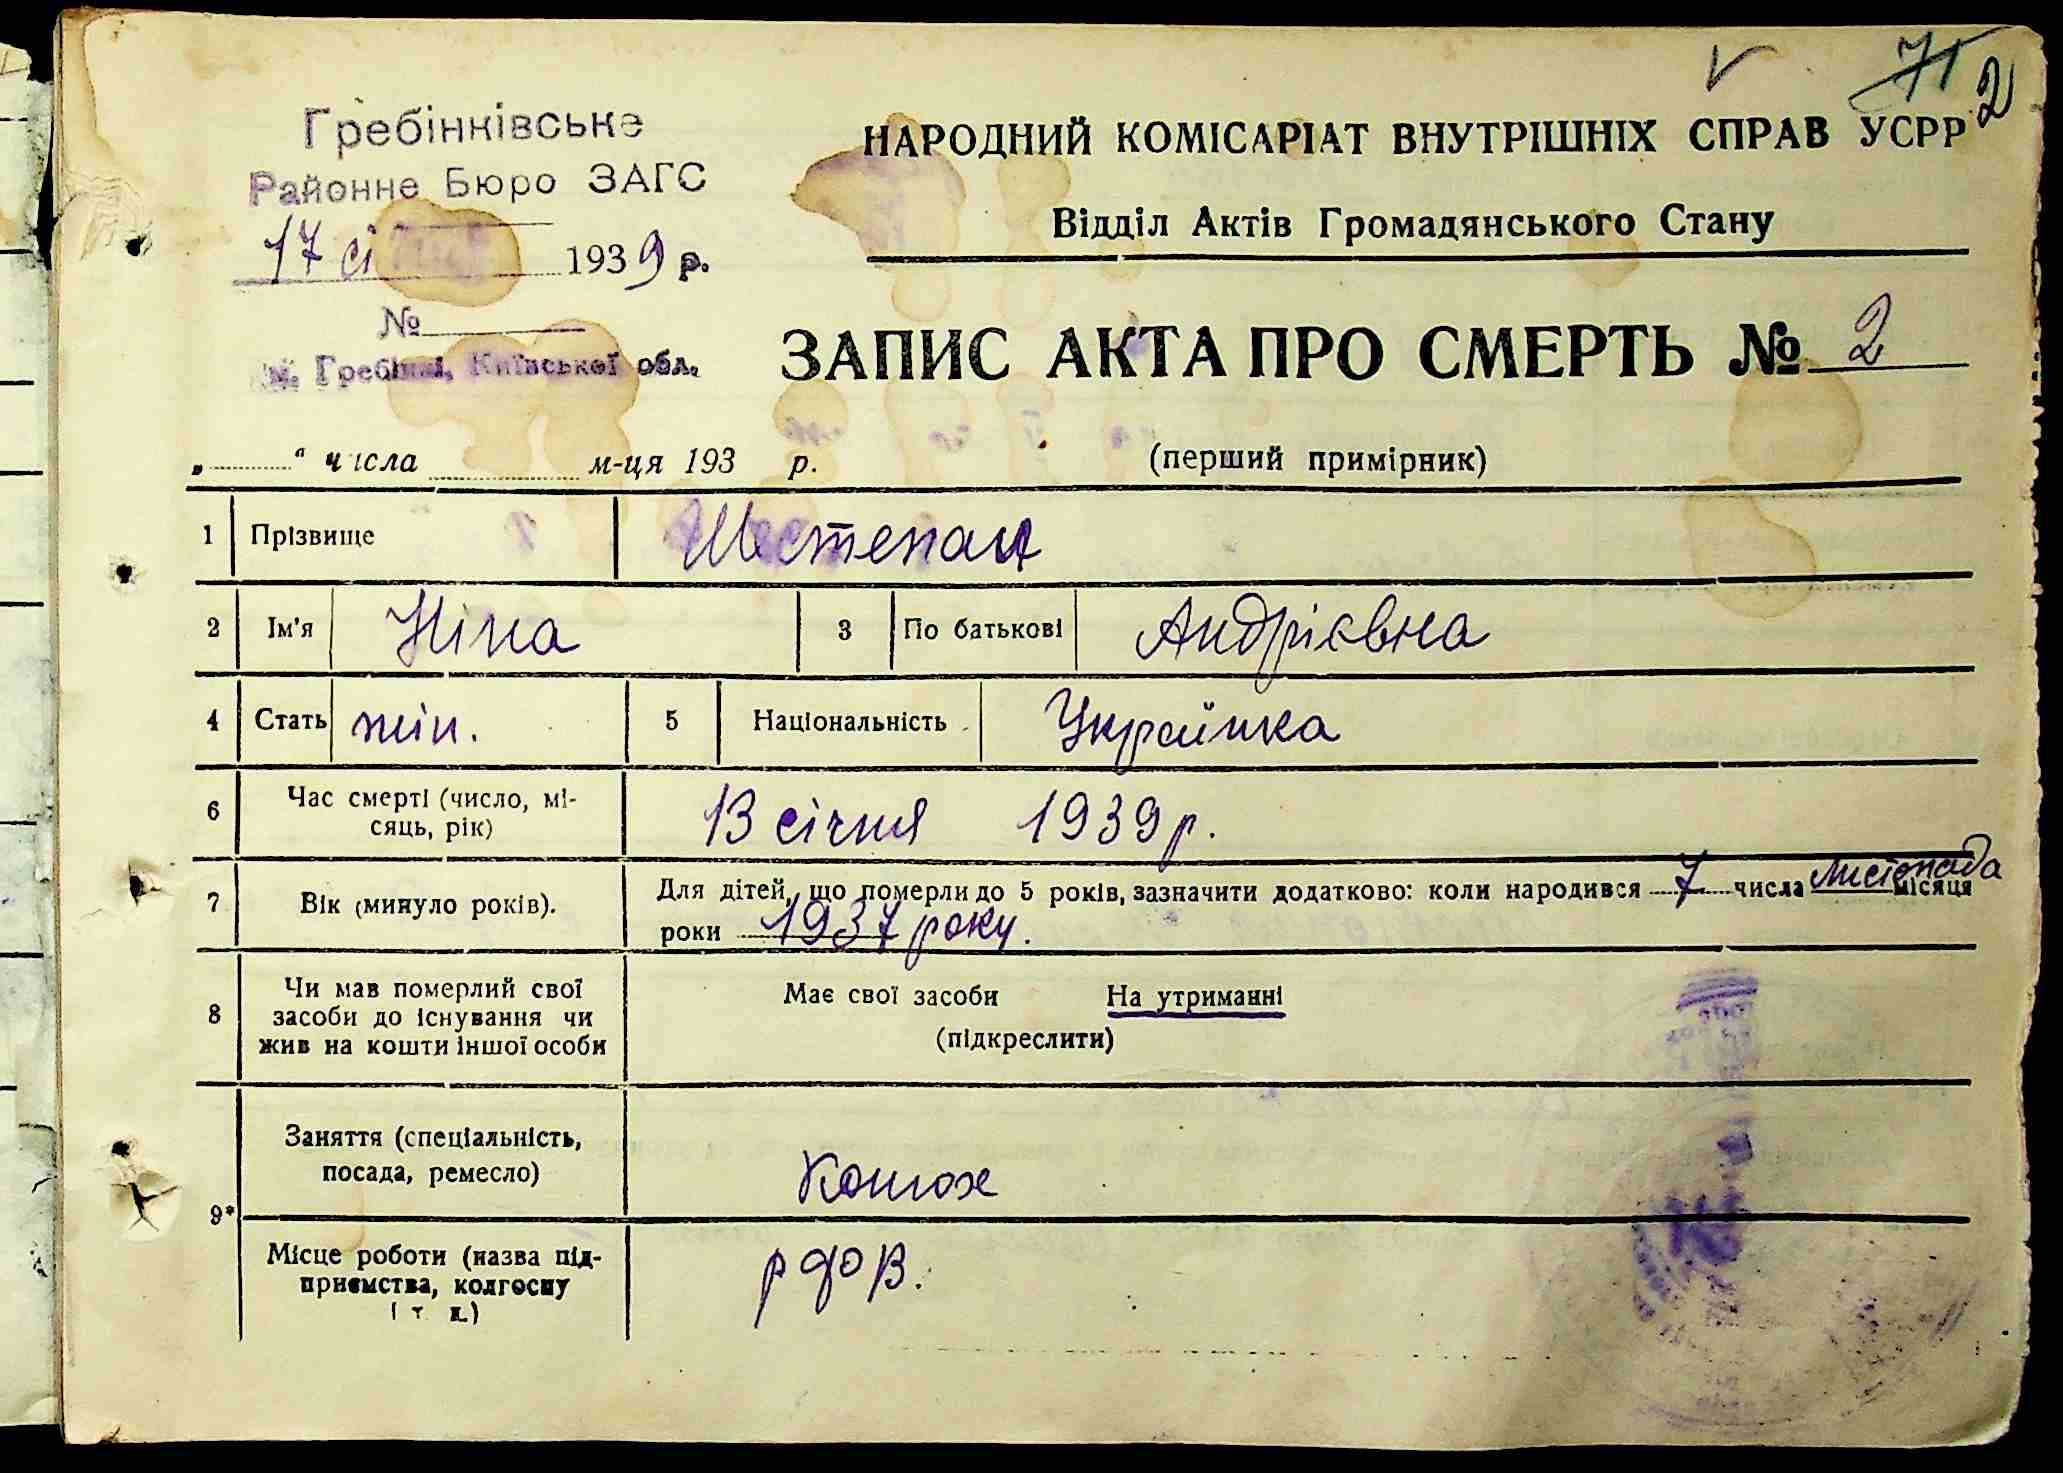 71 2
Гребінківське
Районне Бюро ЗАГС
17 сі 1939 р.
№
м. Гребінкі, Київської обл.
НАРОДНИЙ КОМІСАРІАТ ВНУТРІШНІХ СПРАВ УСРР
Відділ Актів Громадянського Стану
ЗАПИС АКТА ПРО СМЕРТЬ № 2
„ “ числа м-ця 193 р. (перший примірник)
1 Прізвище
2 Ім'я Ніна 3 По батькові Андрієвна
4 Стать жін. 5 Національність Українка
6 Час смерті (число, мі-
сяць, рік) 13 січня 1939 р.
7 Вік (минуло років). Для дітей, що померли до 5 років, зазначити додатково: коли народився 7 числа листопада місяця
роки 1937 року.
8 Чи мав померлий свої
засоби до існування чи
жив на кошти іншої особи
Має свої засоби На утриманні
(підкреслити)
9*
Заняття (спеціальність,
посада, ремесло) Конюх
Місце роботи (назва під-
приємства, колгоспу
і т. д.)